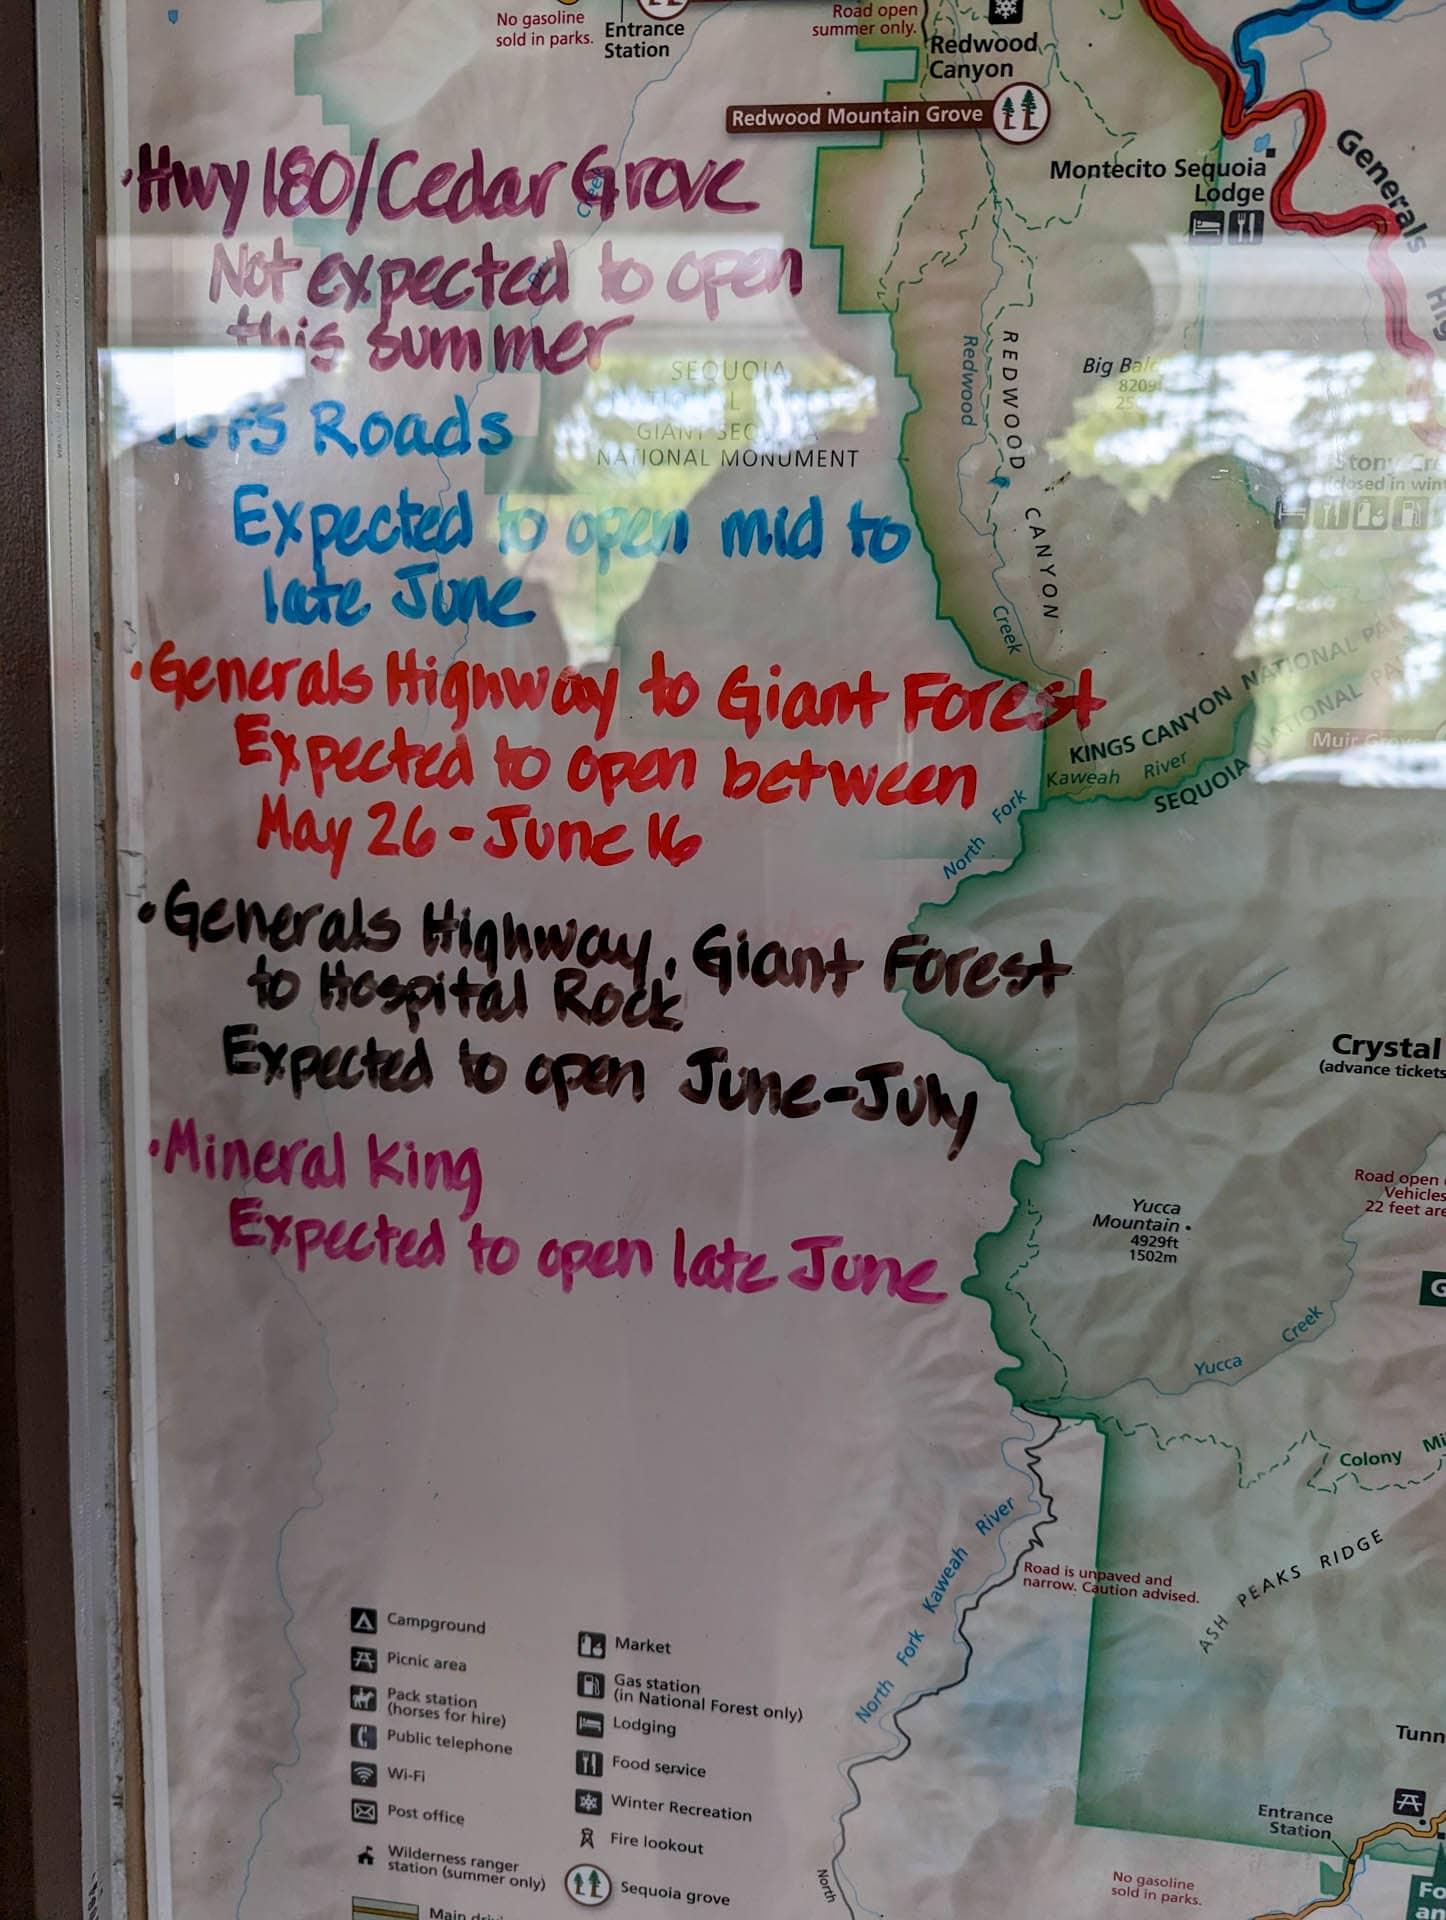 No gasoline
sold in parks.
Entrance
Station
Road open
summer only.
Redwood
Canyon
Redwood Mountain Grove
Montecito Sequoia
Lodge
Generals
Hig
•Hwy 180/Cedar Grove
Creek
Not expected to open
this summer
SEQUOIA
GIANT SEQUOIA
NATIONAL MONUMENT
Redwood
Creek
REDWOOD
CANYON
Big Bal
8209
25
Stony Cre
(closed in wint
Roads
Expected to open mid to
late June
•Generals Highway to Giant Forest
Expected to open between
May 26 - June 16
KINGS CANYON NATIONAL PA
SEQUOIA NATIONAL PA
Muir Grove
Kaweah River
North Fork
•Generals Highway, Giant Forest
to Hospital Rock
Expected to open June-July
Crystal
(advance tickets
•Mineral King
Expected to open late June
Yucca
Mountain •
4929ft
1502m
Road open
Vehicles
22 feet are
G
Yucca Creek
Colony Mi
North Fork Kaweah River
Road is unpaved and
narrow. Caution advised.
ASH PEAKS RIDGE
Campground
Picnic area
Pack station
(horses for hire)
Public telephone
Wi-Fi
Post office
Wilderness ranger
station (summer only)
Market
Gas station
(in National Forest only)
Lodging
Food service
Winter Recreation
Fire lookout
Sequoia grove
Tunn
Entrance
Station
No gasoline
sold in parks.
North
Fo
an